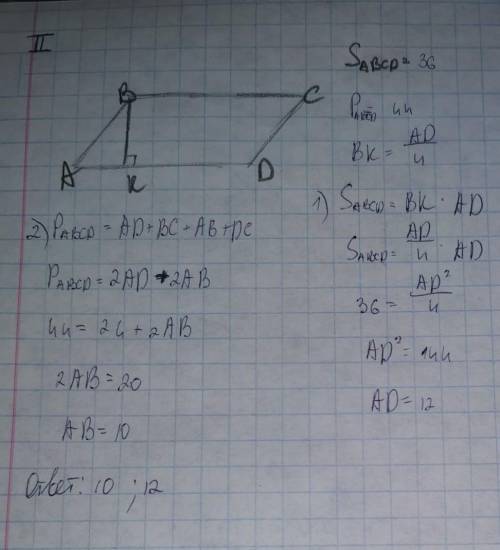 II
B
C
A
K
D
S_ABCD = 36
P_ABCD = 44
BK = AD/4
1) S_ABCD = BK · AD
S_ABCD = AD/4 · AD
36 = AD²/4
AD² = 144
AD = 12
2) P_ABCD = AD + BC + AB + DC
P_ABCD = 2AD + 2AB
44 = 24 + 2AB
2AB = 20
AB = 10
Ответ: 10 ; 12